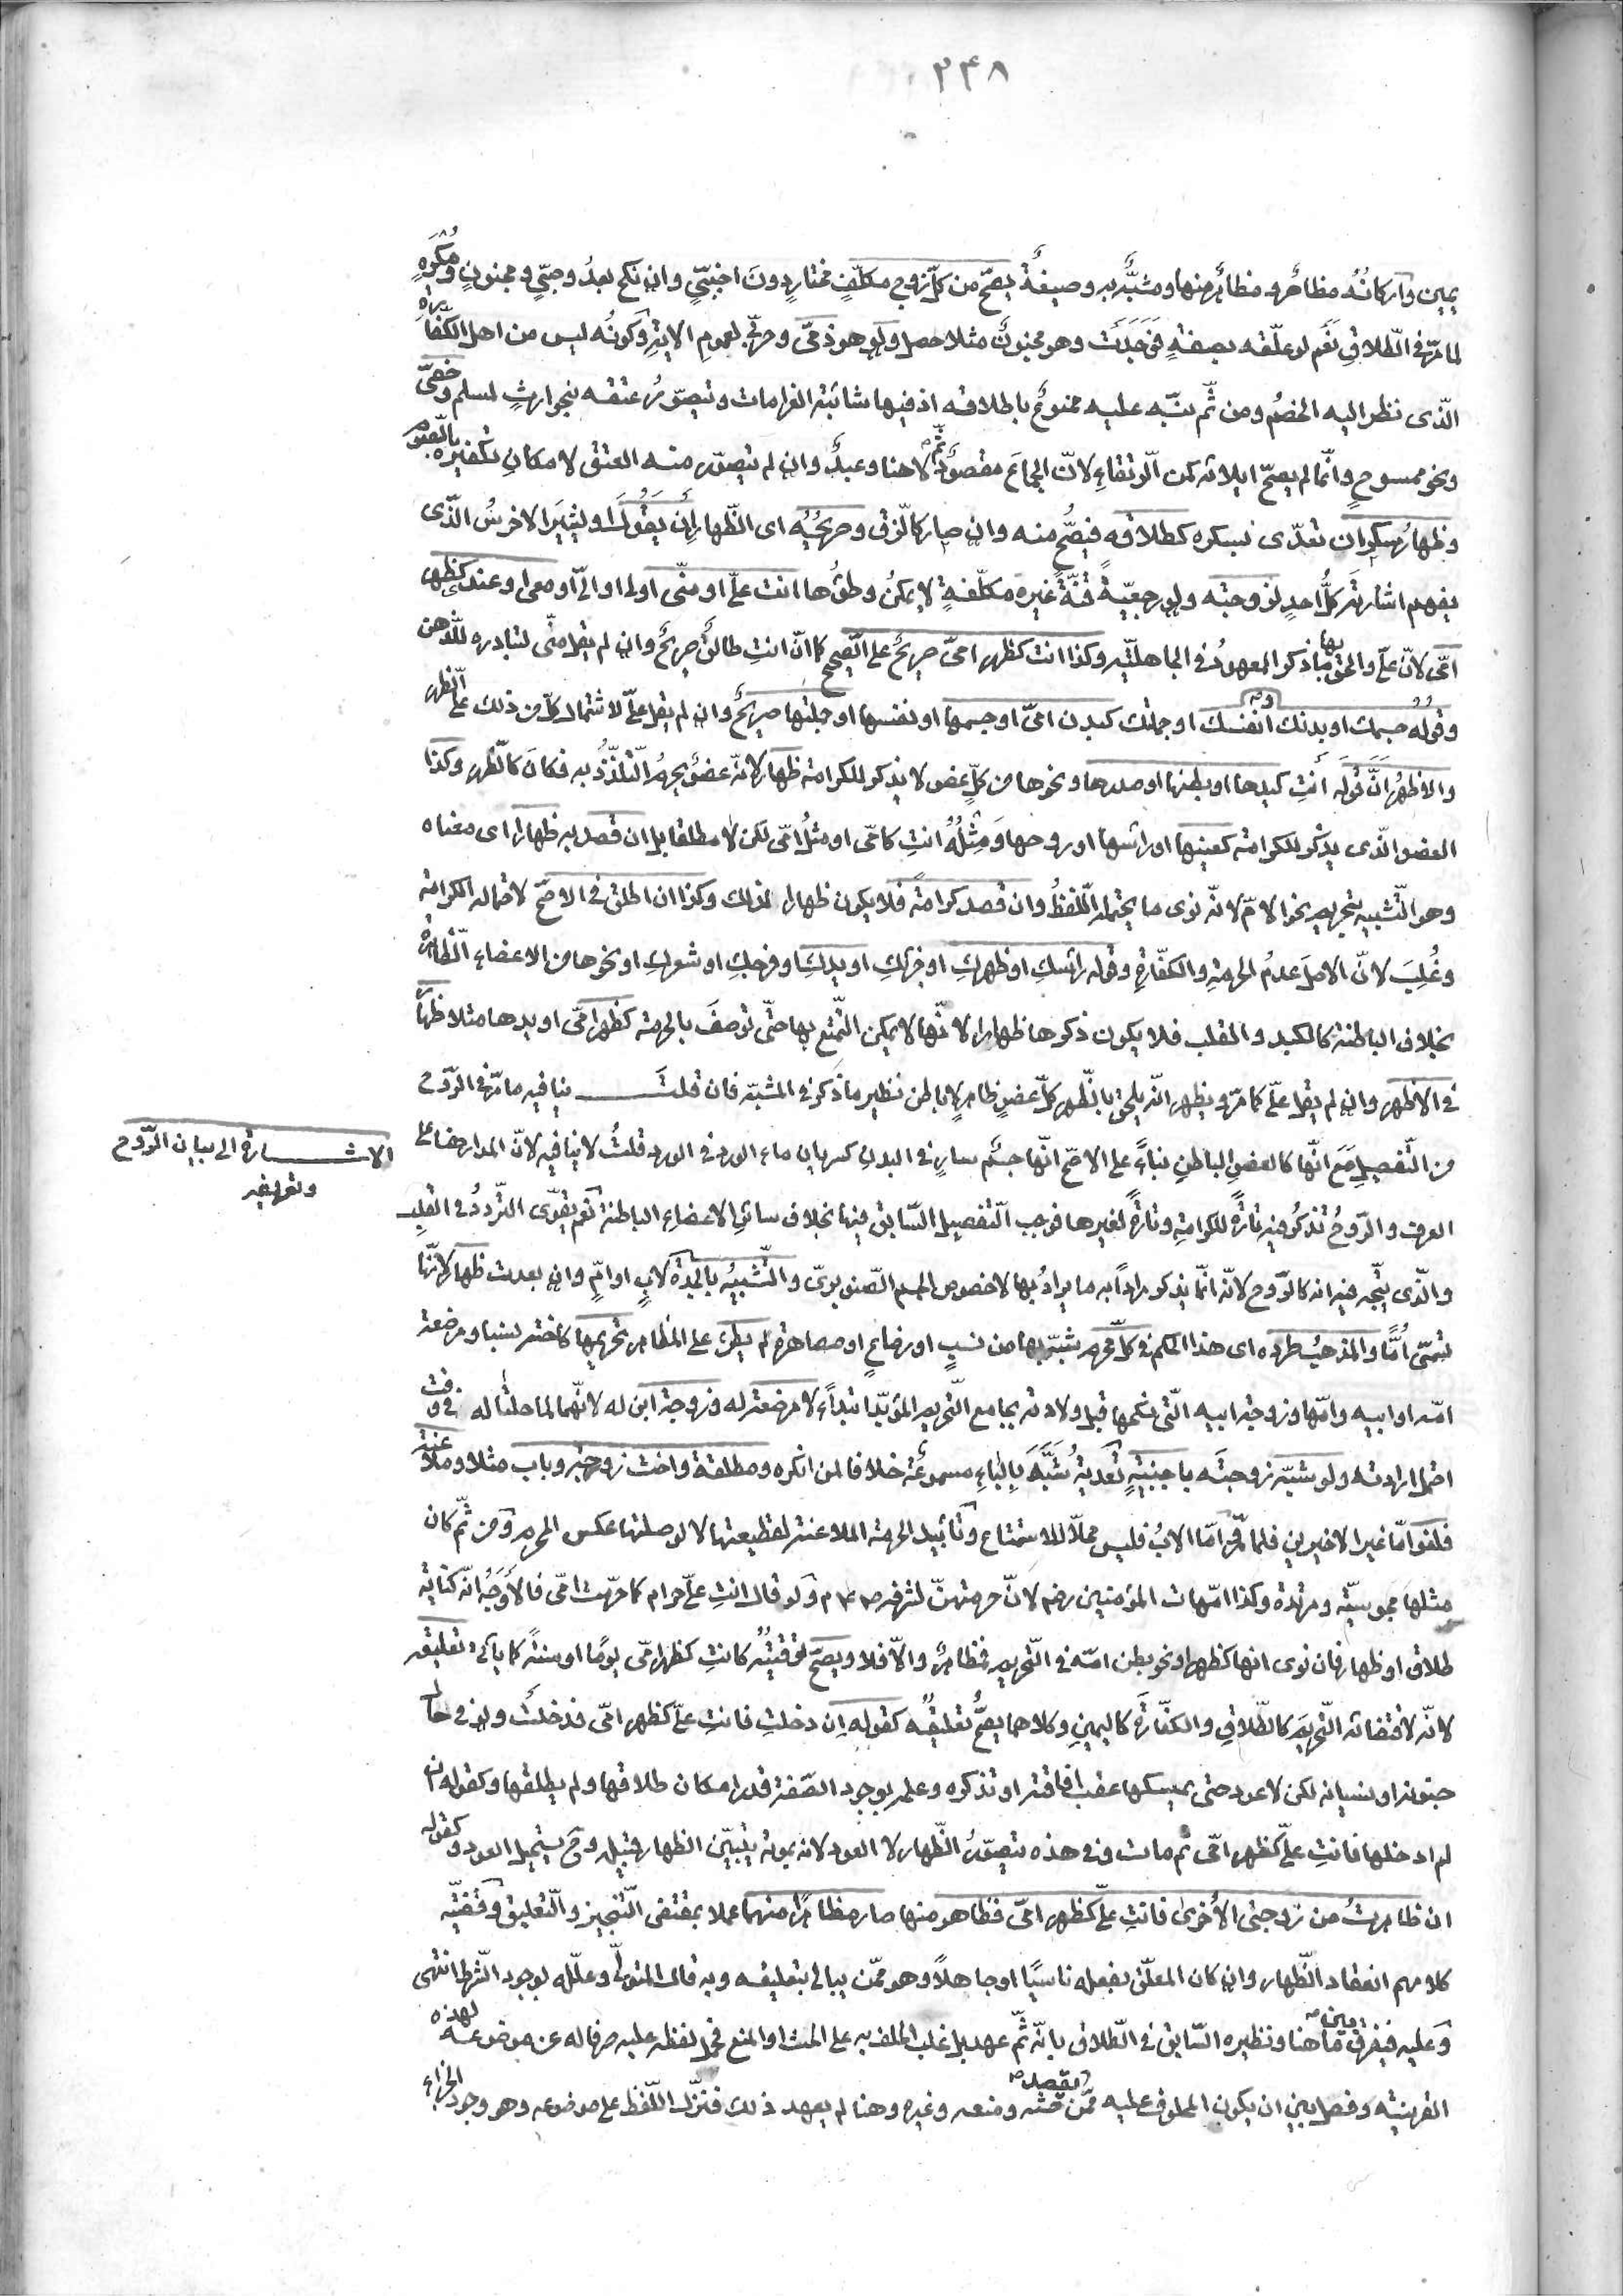 ٣٤٨
يمين واركانُهُ مظاهرٌ ومظاهرٌ منها ومشبَّهٌ به وصيغةٌ يصحّ من كلّ زوج مكلّفٍ مختارٍ دونَ اجنبيٍّ وان نكح بعدُ وصبيٍّ ومجنونٍ ومُكرَهٍ
لما مرّ في الطّلاق نَعَم لو علّقه بصفةٍ فَوُجِدَتْ وهو مجنونٌ مثلا حصل ولو هو ذمّى وحربىّ لعمومِ الاية وكونُه ليس من اهل الكفّارة
الّذى نظر اليه الخصمُ ومن ثَمّ نبّه عليه ممنوعٌ باطلاقه اذ فيها شائبة الغرامات ويتصوّرُ عتقه بنحو ارثٍ لمسلم وخصىّ
ونحو ممسوحٍ وانّما لم يصحّ ايلائه كمن الرّتقاءِ لانّ الجماعَ مقصودٌ ثَمّ لا هنا وعبدٌ وان لم يتصوّر منه العتق لامكانِ تكفيره بالصوم
وظهارُ سكران تعدّى بسكره كطلاقه فيصُّح منه وان صار كالزّق وصريحُيُه اى الظّهار اَن يقُولَ اوليشيرَ الاخرسُ الّذى
يفهم اشارته كلُّ احدٍ لزوجته ولو رجعيّةً قنّةً غيره مكلّفةٍ لا يمكنُ وطؤُها انت علىّ او منّى او لى او الىّ او معى او عندى كظهر
امّى لانّ علىّ والحق بها ما ذكر المعهودُ في الجاهليّة وكذا انت كظهر امىّ صريحٌ على الصّحيح كما انّ انتِ طالقٌ صريحٌ وان لم يقل منّى لتبادره للذّهن
وقولُهُ جسمك او بدنك او نفسك او جملتك كبدن امىّ او جسمها او نفسها او جملتها صريحٌ وان لم يقل علىّ لاشتمال كلّ من ذلك على الظّهر
والاظهُر اَنَّ قولَه اَنتِ كيدها او بطنها او صدرها ونحوها من كلّ عضو لا يذكر للكرامة ظهار لانّه عضوٌ يحرمُ التّلذّذُ به فكانَ كالظّهر وكذا
العضو الّذى يذكر للكرامة كعينها او رأسها او روحها وَمِثْلُهُ اَنتِ كامّى او مثلُ امّى لكن لا مطلقا بل ان قصد به ظهارا اى معناه
وهو التّشبيه بتحريم نحو الامّ لانّه نوى ما يحتمله اللّفظُ وان قصد كرامةً فلا يكون ظهارا لذلك وكذا ان اطلق في الاصحّ لاحتماله الكرامة
وغُلِبَ لانّ الاصلَ عدمُ الحرمةِ والكفّارةِ وقوله رأسكِ او ظهركِ او جزئكِ او يدكِ او فرجكِ او شعركِ او نحوها من الاعضاء الظّاهرة
بخلاف الباطنة كالكبد والقلب فلا يكون ذكرها ظهارا لانّها لا يمكن التّمتّع بها حتّى توصفَ بالحرمة كظهر امّى او يدها مثلا ظهارٌ
في الاظهر وان لم يقل علىّ كما مرّ ويظهر انّه يلحق بالظّهر كلّ عضوٍ ظاهرٍ لا باطن نظير ما ذكر في المشبّه فان قلتَ ينافيه ما مرّ في الرّوح
من التّفصيل مَعَ انّها كالعضو الباطنِ بناءً على الاصّح انّها جسْم سارٍ في البدن كسريان ماء الورد في الورد قلتُ لا ينافيه لانّ المدار هنا على
الاشارة الى بيان الرّوح
وتعريفه
العرف والرّوحُ تذكرُ فيه تارةً للكرامةِ وتارةً لغيرها فوجب التّفصيل السّابق فيها بخلاف سائرِ الاعضاء الباطنة نَعَم يقوّى التّردّدُ في القلبِ
والّذى يتّجه فيه انه كالرّوح لانّه انّما يذكر مراداً به ما يرادُ بها لا خصوص الجسم الصّنوبرىّ والتّشبيُه بالجدة لابٍ او امٍّ وان بعدت ظهار لانّها
تسمّى اُمًّا والمذهبُ طرده اى هذا الحكم في كلّ محرم شبّه بها من نسبٍ او رضاعٍ او مصاهرة لم يطرء على المظاهر تحريمها كاخته نسبا ومرضعة
امّه او ابيه وامّها وزوجة ابيه الّتى نكحها قبل ولادته بجامع التّحريم المؤبّد ابتداءً لا مرضعة له وزوجة ابن له لانّهما لما حلتا له في وقت
احتمل ارادته ولو شبّه زوجتَه باجنبيّةٍ تَعديةُ شَبَّهَ بِالباءِ مسموعَة خلافا لمن انكره ومطلقة واخت زوجته وباب مثلا وملاعنة
فلغو امّا غير الاخيرين فلما مرّ امّا الابُ فليس محلّا للاستمتاع وتأبيد الحرمة الملاعنة لقطيعتها لا لوصلتها عكس المحرم ومن ثمّ كان
مثلها مجوسيّة ومرتدة وكذا امّهات المؤمنين رضم لانّ حرمتهنّ لشرفه ص٢٤م ولو قال انتِ علىّ حرام كما حرّمت امّى فالاَوجَهُ انّه كناية
طلاق او ظهار فان نوى انها كظهر او نحو بطن امّه في التّحريم فمظاهرٌ والّا فلا ويصحّ توقيتُه كانتِ كظهر امّى يومًا او سنةً كما يأتى وتعليقه
لانّه لاقتضائه التّحريمَ كالطّلاقِ والكفّارَة كاليمينِ وكلاهما يصحُّ تعليقُه كقوله اِن دخلتِ فانتِ علىّ كظهر امّى فدخلتْ ولو في حال
جنونه او نسيانه لكن لا عود حتى يمسكها عقب افاقته او تذكره وعلمه بوجود الصّفة قدر امكان طلاقها ولم يطلقها وكقوله ان
لم ادخلها فانتِ علىّ كظهر امّى ثم مات وفى هذه يتصوّرُ الظّهار لا العود لانه بموته يتبيّن الظهار قبيله وح يستحيل العود وكقوله
ان ظاهرتُ من زوجتى الاُخرى فانتِ علىّ كظهر امّى فظاهر منها صار مظاهرًا منهما عملا بمقتضى التّنجيز والتّعليق وقضيّة
كلامهم انعقاد الظّهار وان كان المعلّق بفعله ناسيًا او جاهلاً وهو ممّن يبالى بتعليقه وبه قال المتولّى وعلّله بوجود الشّرط انتهى
وعليه فيفرق بين ما هنا ونظيره السّابق في الطّلاق بانّه ثَمّ عهد بل غلب الحلف به على الحث او المنع فحمل لفظه عليه صرفا له عن موضوعه لهذه
القرينة وفصل بين ان يكون المحلوف عليه ممّن يقصد حثّه ومنعه وغيره وهنا لم يعهد ذلك فنزّل اللّفظ على موضوعه وهو وجود الجزاء